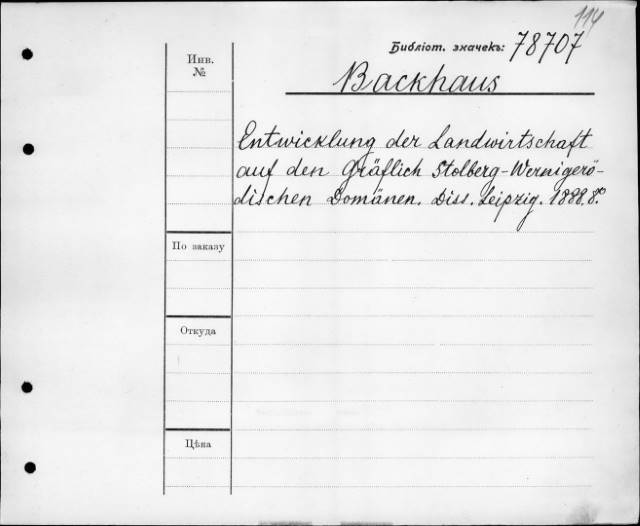 114
Библіот. значекъ: 78707
Инв.
№
Backhaus
Entwicklung der Landwirtschaft
auf den Gräflich Stolberg-Wernigerö-
dischen Domänen. Diss. Leipzig. 1888. 8º.
По заказу
Откуда
Цѣна